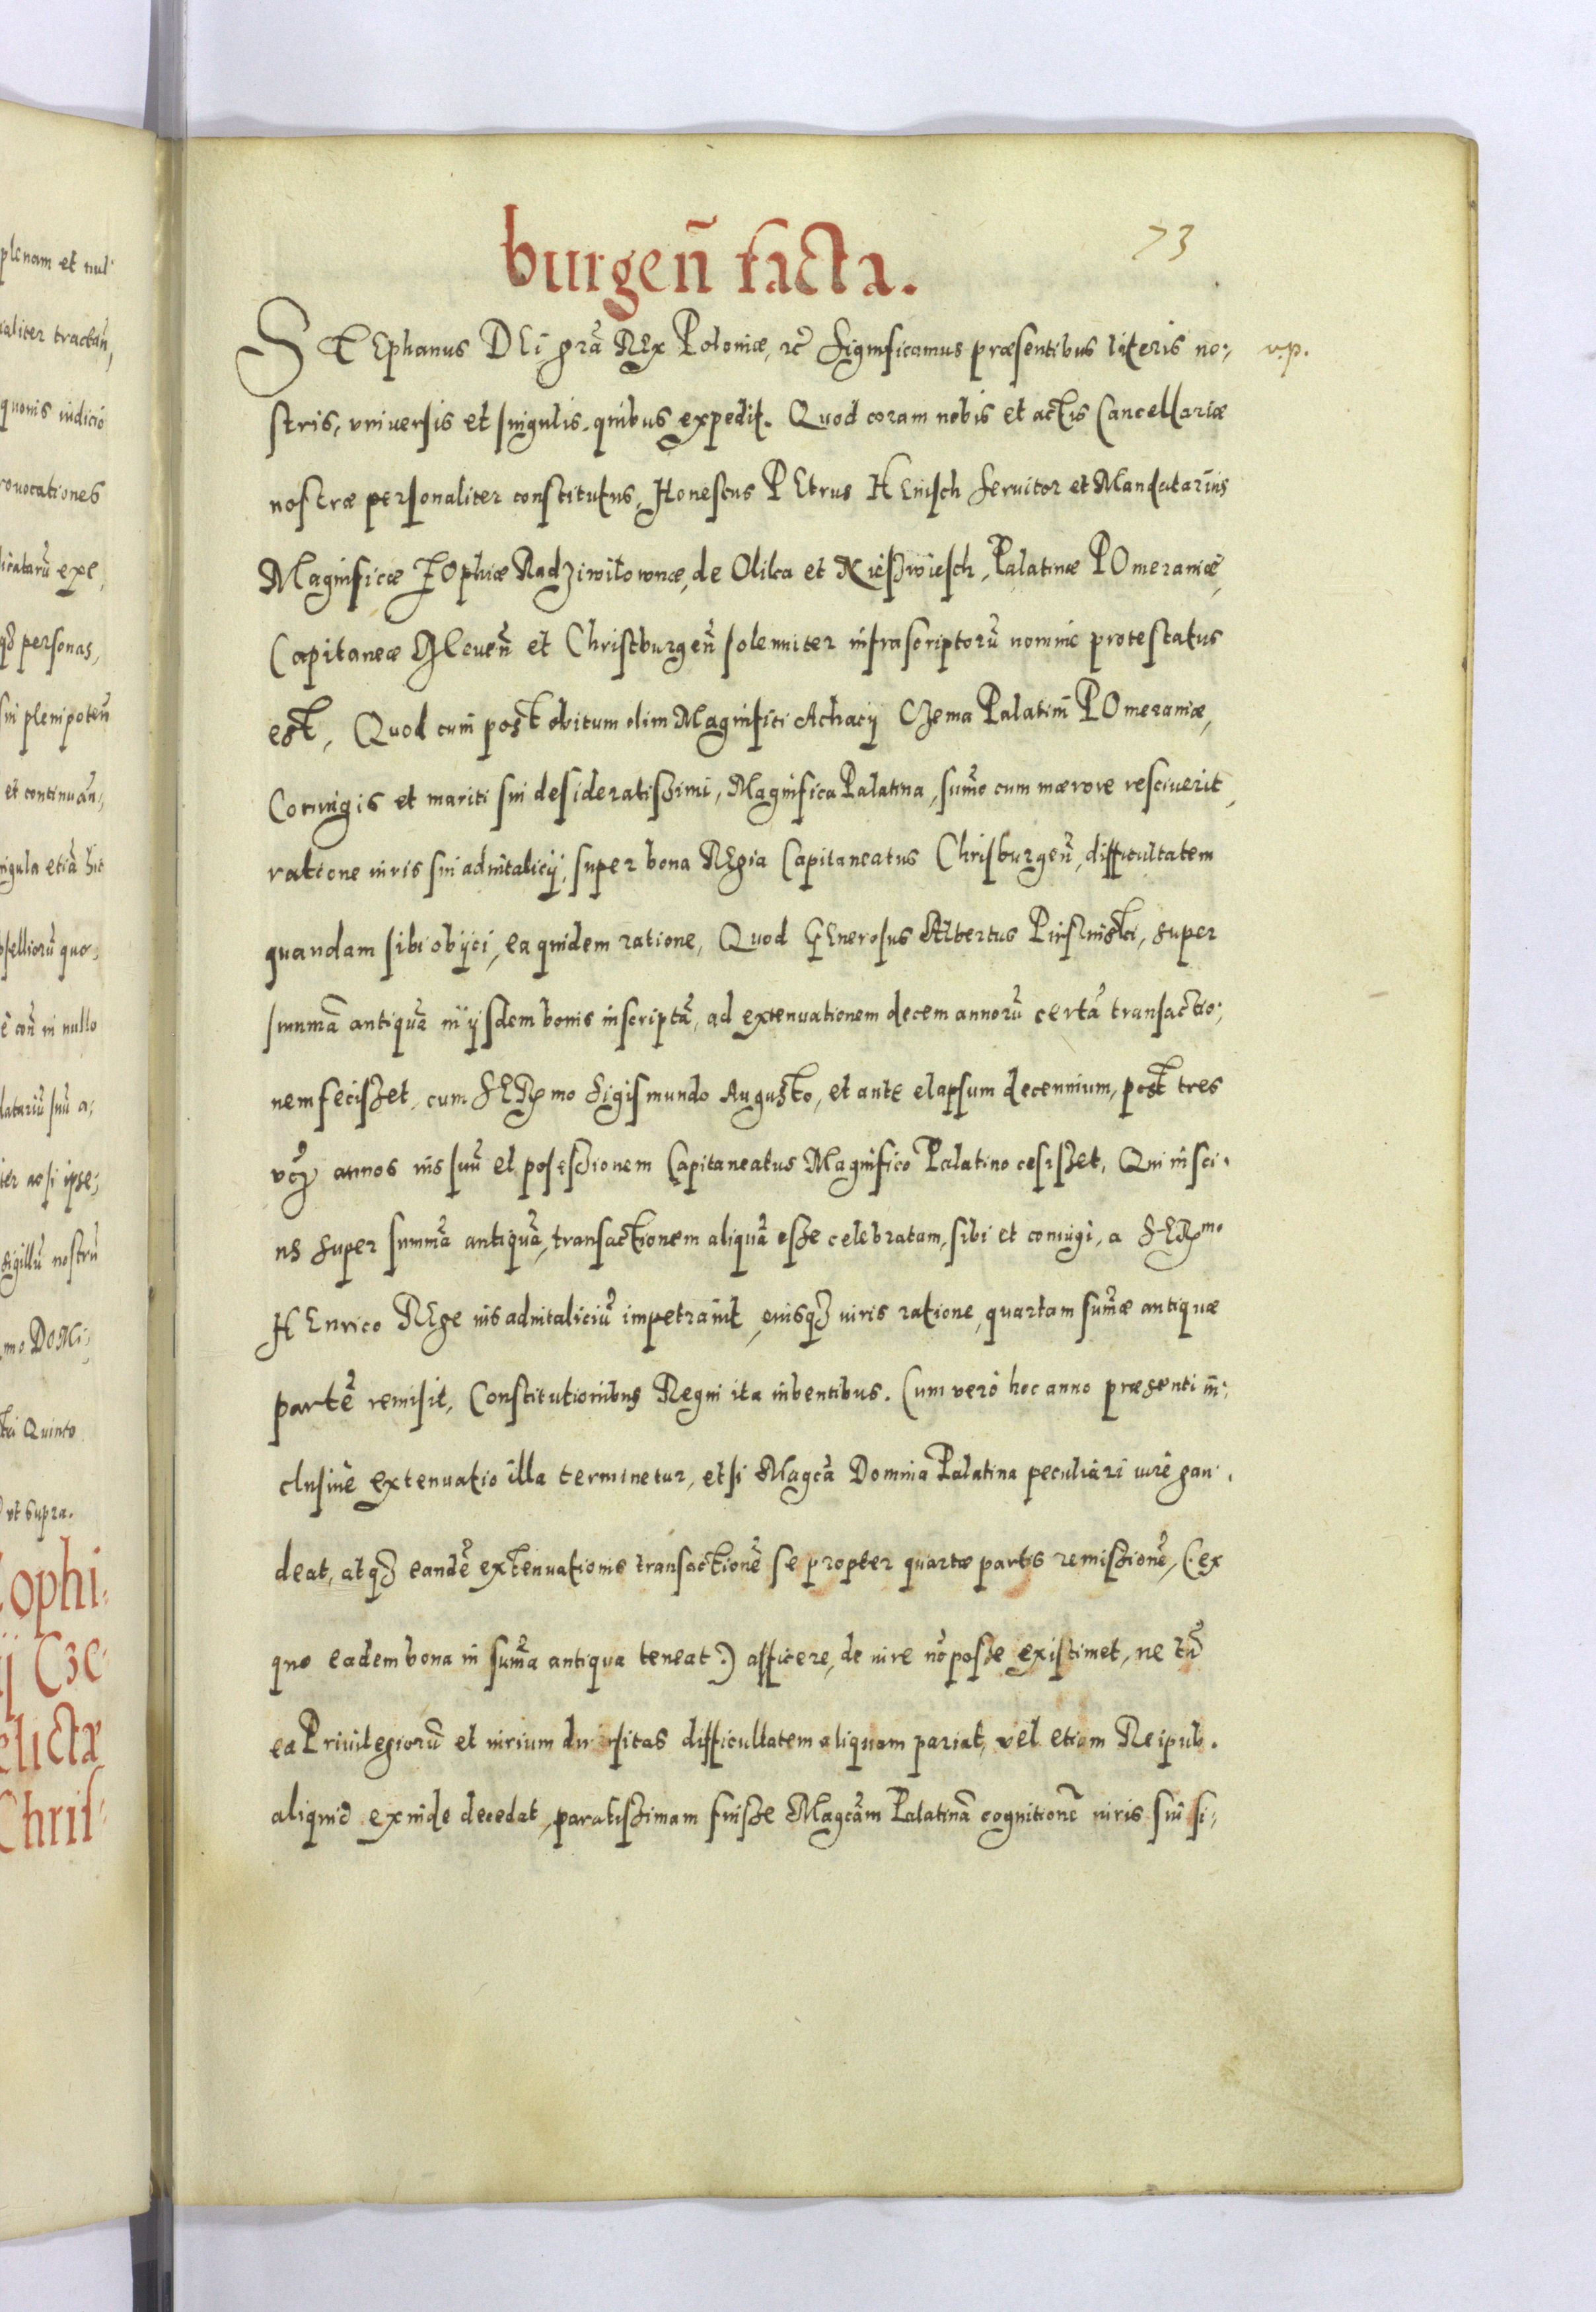 plenam et nul
ialiter tractan̄,
quouis iudicio
rouocationes
licatarū exe,
qȝ personas,
sui plenipoten̄
et continuan̄,
ngula etiā hic
in nullo
datariū suū a;
iter ac si ipse;
sigillū nostrū
mo DOMi;
tri Quinto
vt supra.
Zophi:
ij Cze:
elictæ
Chris:
73
burgen̄ facta.
STEphanus DEi grā REx Poloniæ, rc̄ Significamus præsentibus literis no:,
v.p.
stris, vniuersis et singulis, quibus expedit. Quod coram nobis et actis Cancellariæ
nostræ personaliter constitutus, Honestus PEtrus HEnisch seruitor et Mandatarius
Magnificæ ZOphiæ Radziwilownæ, de Olika et Nieszwiesch, Palatinæ POmeraniæ,
Capitaneæ Gleuen̄ et Christburgen̄ solenniter infrascriptorū nomine protestatus
est, Quod cum post obitum olim Magnifici Achacij Czema Palatini POmeraniæ,
Coniugis et mariti sui desideratiszimi, Magnifica Palatina, sūmo cum mærore resciuerit,
ratione iuris sui aduitalicij, super bona REgia Capitaneatus Chrisburgen̄, difficultatem
quandam sibi obijci, ea quidem ratione, Quod GEnerosus Albertus super
summā antiquā in ijsdem bonis inscriptā, ad extenuationem decem annorū certā transactio;
nem feciszet, cum SERmo Sigismundo Augusto, et ante elapsum decennium, post tres
vc̄ȝ annos ius suū et poseszionem Capitaneatus Magnifico Palatino cesiszet, Qui insci.
us super summā antiquā, transactionem aliquā esze celebratam, sibi et coniugi, a SERmo
HEnrico REge ius aduitaliciū impetrauit, eiusqȝ iuris ratione, quartam sūmæ antiquæ
partē remisit, Constitutionibus Regni ita iubentibus. Cum vero hoc anno præsenti in;
clusiue extenuatio illa terminetur, etsi Magcā Domina Palatina peculiari iure gau.
deat, atqȝ eandē extenuationis transactionē se propter quartæ partis remiszionē, (: ex
quo eadem bona in sūma antiqua teneat :) afficere, de iure nō posze existimet, ne tn̄
ea Priuilegiorū et iurium diuersitas difficultatem aliquam pariat, vel etiam Reipub.
aliquid exinde decedat, paratiszimam fuisze Magcām Palatinā cognitionē iuris sui si,